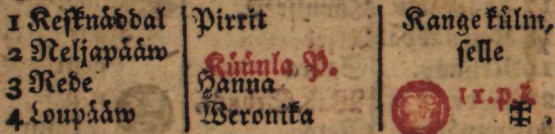 1 Kesknäddal Pirrit Kange külm,
2 Neljapääw Küünla P. selle
3 Rede Hanna 11.p.k
4 Loupääw Weronika ‡